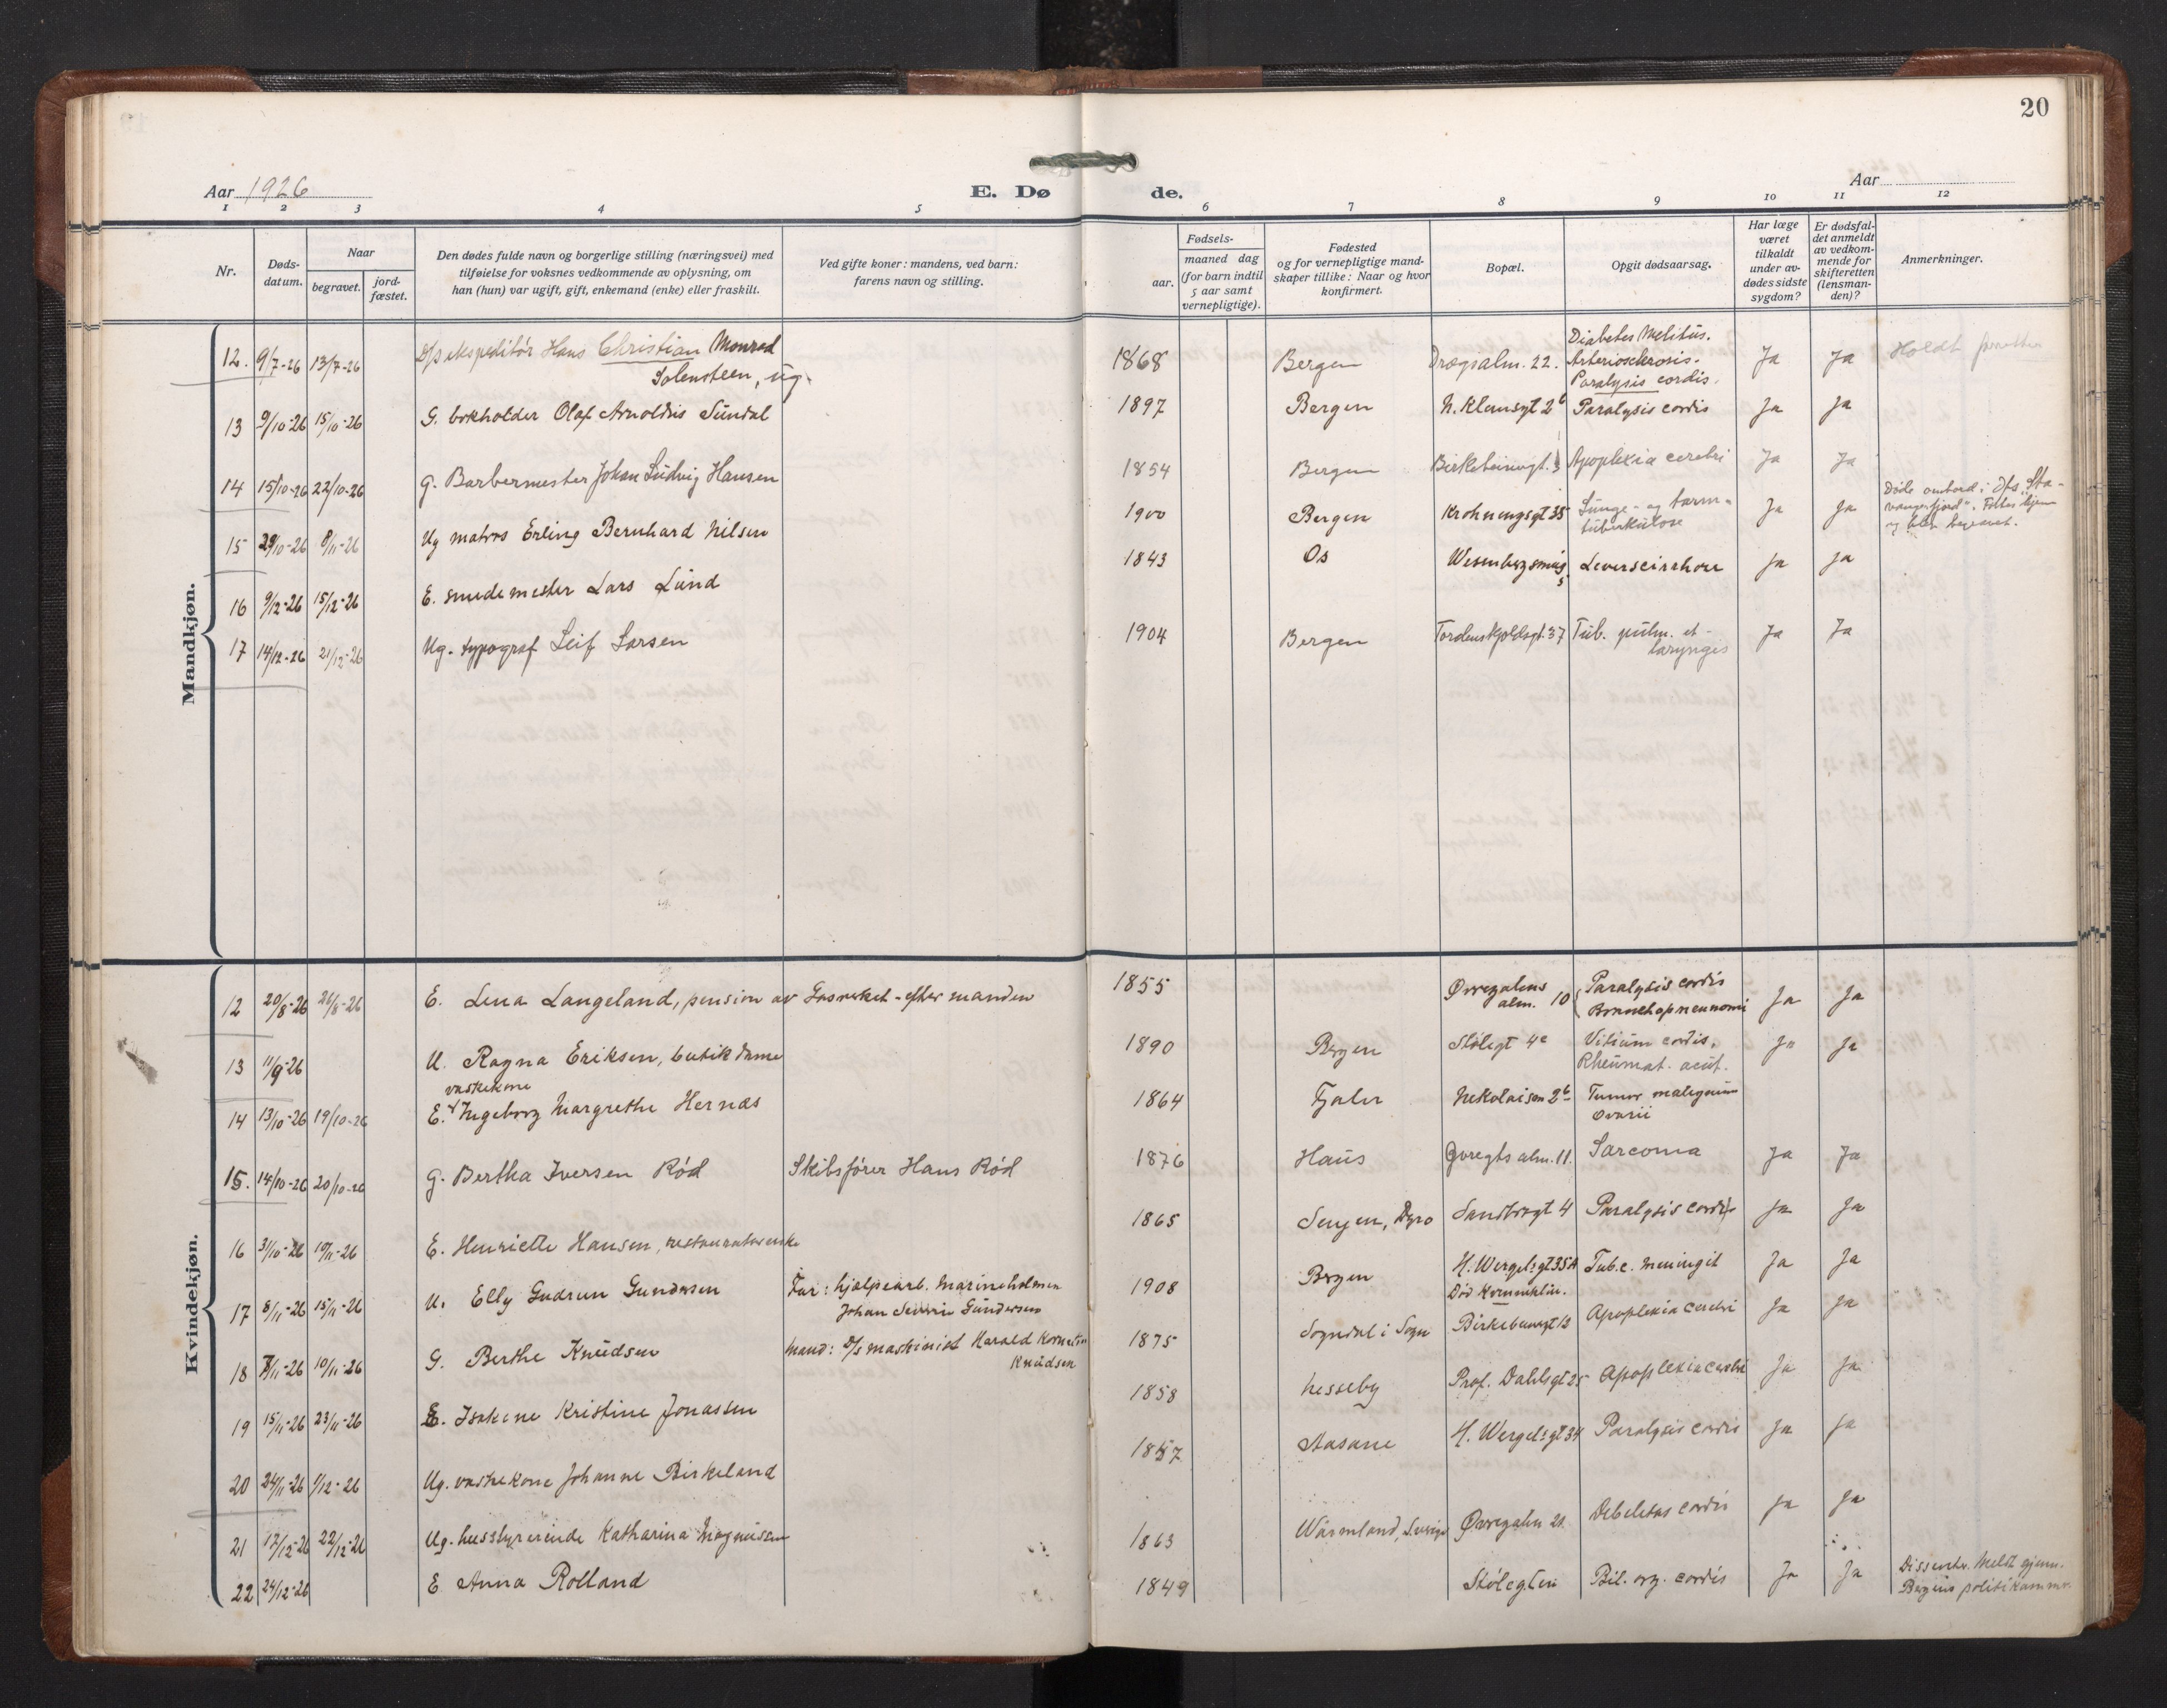 20
Aar 1926
E. Dø
de.
Aar
1 2 3 4 5 6 7 8 9 10 11 12
Nr.
Døds-
datum.
Naar
begravet.
jord-
fæstet.
Den dødes fulde navn og borgerlige stilling (næringsvei) med
tilføielse for voksnes vedkommende av oplysning, om
han (hun) var ugift, gift, enkemand (enke) eller fraskilt.
Ved gifte koner: mandens, ved barn:
farens navn og stilling.
aar.
Fødsels-
maaned dag
(for barn indtil
5 aar samt
vernepligtige).
Fødested
og for vernepligtige mand-
skaper tillike: Naar og hvor
konfirmert.
Bopæl.
Opgit dødsaarsag.
Har læge
været
tilkaldt
under av-
dødes sidste
sygdom?
Er dødsfal-
det anmeldt
av vedkom-
mende for
skifteretten
(lensman-
den)?
Anmerkninger.
Mandkjøn.
12. 9/7-26 13/7-26 D/s ekspeditör Hans Christian Monrad
Solensteen, ug. 1868 Bergen Drægialm. 22. Diabetes Melitus.
Arteriosclerosis.
Paralysis cordis. Ja Ja
13 9/10-26 15/10-26 G. bokholder Olaf Arnoldus Sundal 1897 Bergen N. Klausgt 2b Paralysis cordis Ja Ja
14 15/10-26 22/10-26 G. Barbermester Johan Ludvig Hansen 1854 Bergen Apoplexia cerebri Ja Ja
15 29/10-26 8/11-26 Ug matros Erling Bernhard Nilsen 1900 Bergen Krohnengsgt 35 Lunge- og tarm-
tuberkulose Ja Ja Döde ombord i D/s "Sta-
vangerfjord".
og blev begravet.
16 9/12-26 15/12-26 E. smedemester Lars Lund 1843 Os Wesenbergsmug 5 Levercirrhose Ja Ja
17 14/12-26 21/12-26 Ug. typograf Leif Larsen 1904 Bergen Tordenskjoldsgt. 37 Tub. pulm. et
laryngis Ja Ja
Kvindekjøn.
12 20/8-26 26/8-26 E. Lena Langeland, pension av Gasverket - efter manden 1855 Øvregatens
alm. 10 Paralysis cordis
Bronchopneunomi Ja Ja
13 11/9-26 U. Ragna Eriksen, butikdame 1890 Bergen Stölegt 4c Vitium cordis,
Rheumat. acut. Ja Ja
vaskekone
14 13/10-26 19/10-26 E. Ingeborg Margrethe Hernæs 1864 Fjaler Nekolaism 2b Tumor malignum
ovarii
15. 14/10-26 20/10-26 G. Bertha Iversen Röd Skibsfører Hans Röd 1876 Haus Øvregts alm. 11. Sarcoma Ja Ja
16 31/10-26 10/11-26 E. Henriette Hansen, restauratørenke 1865 Senjen, Dyrö Sandbrogt 4 Paralysis cordis Ja Ja
17 8/11-26 15/11-26 U. Elly Gudrun Gundersen Far: hjælpearb. Marineholmen
Johan Severin Gundersen 1908 Bergen H. Wergelsgt 35A
Död Kvinneklin. Tub.c. meningit Ja Ja
18 7/11-26 10/11-26 G. Berthe Knudsen Mand: D/s maskinist Harald
Knudsen 1875 Sogndal i Sogn Apoplexia cerebri Ja Ja
19 15/11-26 23/11-26 E. Isakine Kristine Jonassen 1858 Nesseby Prof. Dahlsgt 25 Apoplexia cerebri Ja Ja
20 24/11-26 1/12-26 Ug. vaskekone Johanne Birkeland 1857 Aasane H. Wergelsgt 34 Paralysis cordis Ja Ja
21 17/12-26 22/12-26 Ug. husstyrerinde Katharina Magnussen 1863 Wärmland, Sverige Øvregaten 21 Debeletas cordis Ja Ja
22 24/12-26 E Anna Rolland 1849 Stölegten Bil. org. cordis Ja Ja Dissenter. Meldt gjenn.
Bergens politikammer